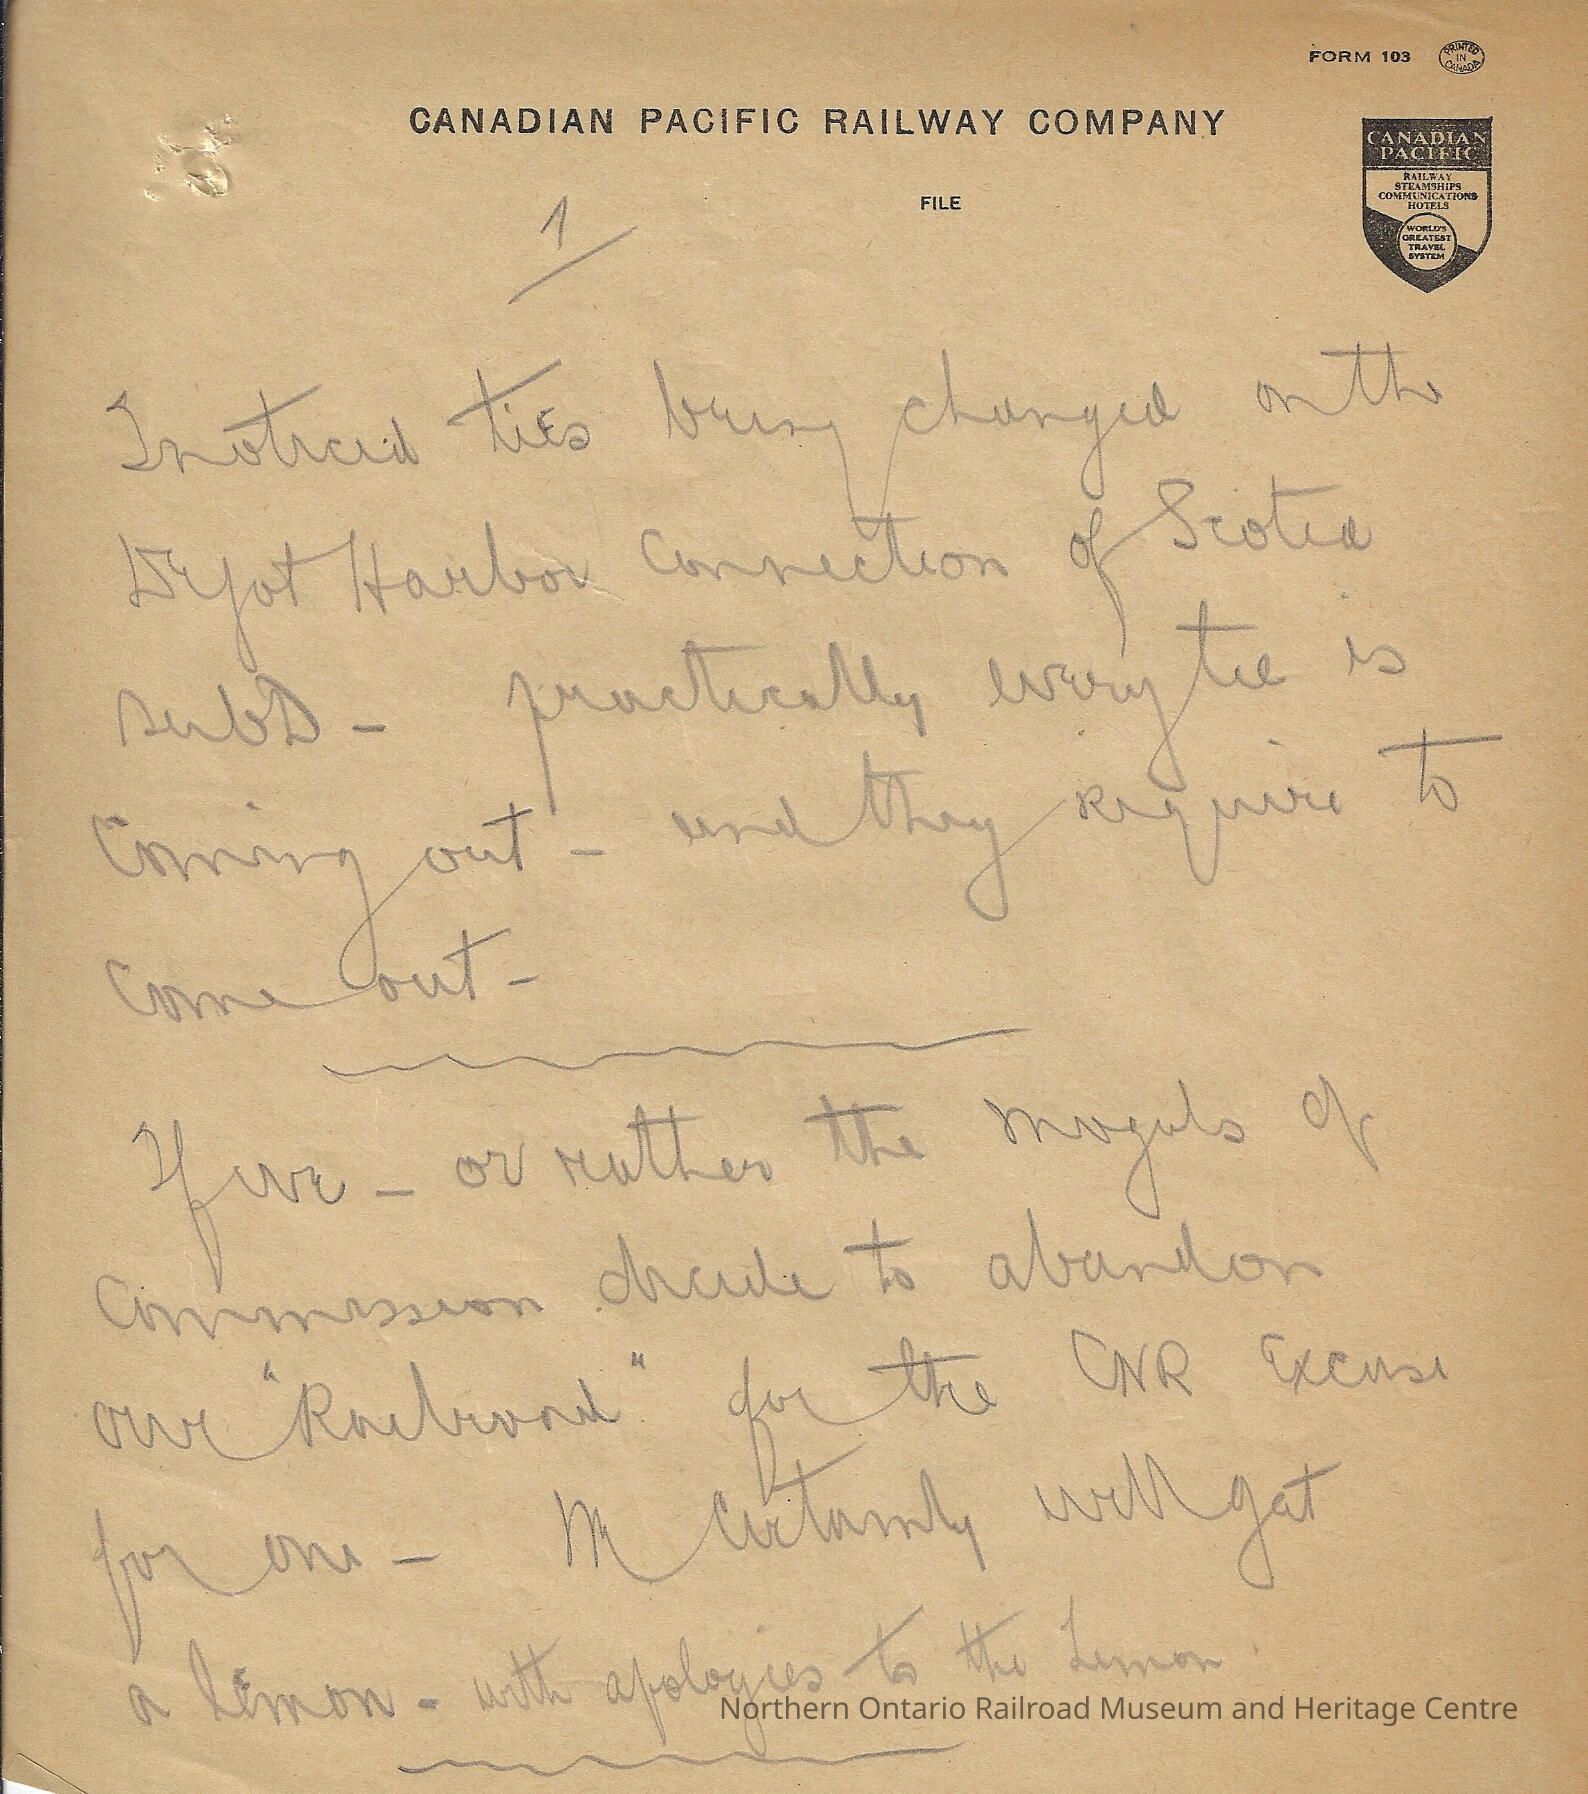 FORM 103 PRINTED IN CANADA
CANADIAN PACIFIC RAILWAY COMPANY
CANADIAN
PACIFIC
RAILWAY
STEAMSHIPS
COMMUNICATIONS
HOTELS
WORLD'S
GREATEST
TRAVEL
SYSTEM
FILE
1
I noticed ties being changed on the
Depot Harbor Connection of Scotia
SubD - practically every tie is
Coming out - and they require to
Come out -
If we - or rather the moguls of
Commission decide to abandon
our "Railroad" for the CNR Excuse
for one - We Certainly will get
a lemon - with apologies to the Lemon.
Northern Ontario Railroad Museum and Heritage Centre